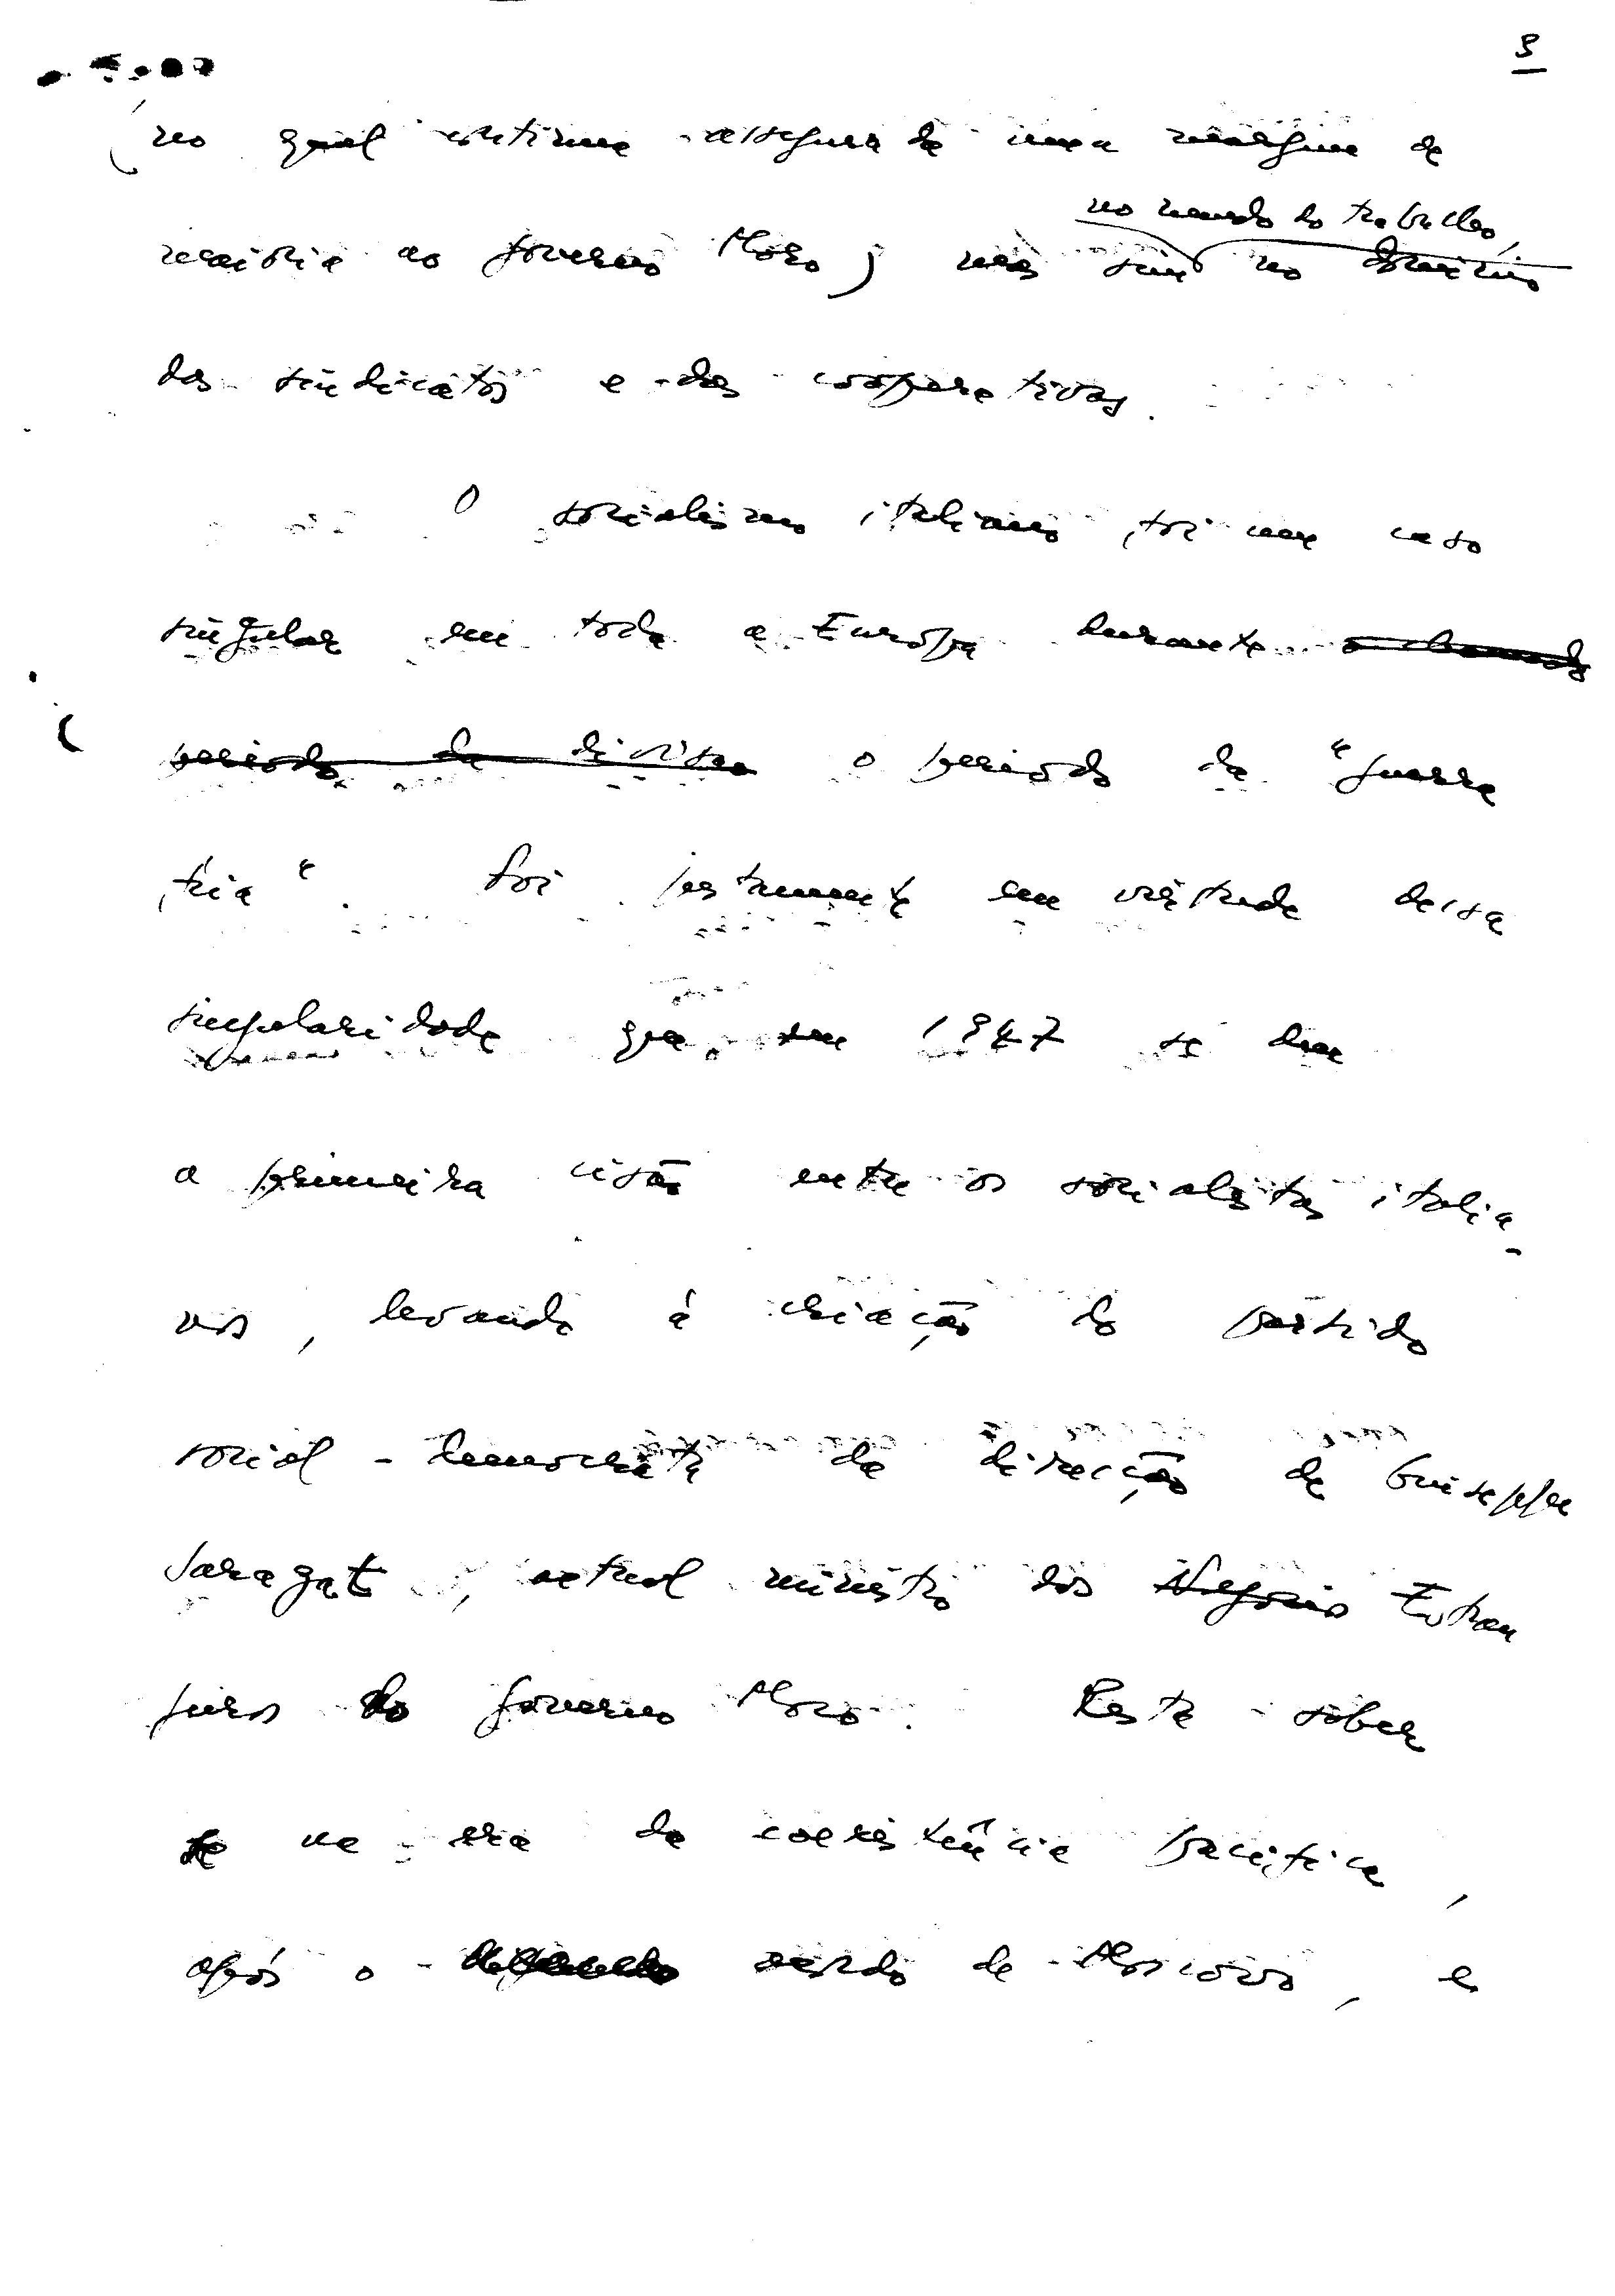 3
(no qual continua assegurada uma margem de
no mundo do trabalho,
maioria ao governo Moro) mas sim no domínio
dos sindicatos e das cooperativas.
O socialismo italiano foi um caso
singular em toda a Europa durante o chamado
período da divisão o período da "guerra
fria". Foi justamente em virtude dessa
singularidade que em 1947 se deu
a primeira cisão entre os socialistas italia-
nos, levando à criação do partido
social-democrata da direcção de Guiseppe
Saragat, actual ministro dos Negócios Estran
jeiros do governo Moro. Resta saber
se na era da coexistência pacífica,
após o acordo de Moscovo, e